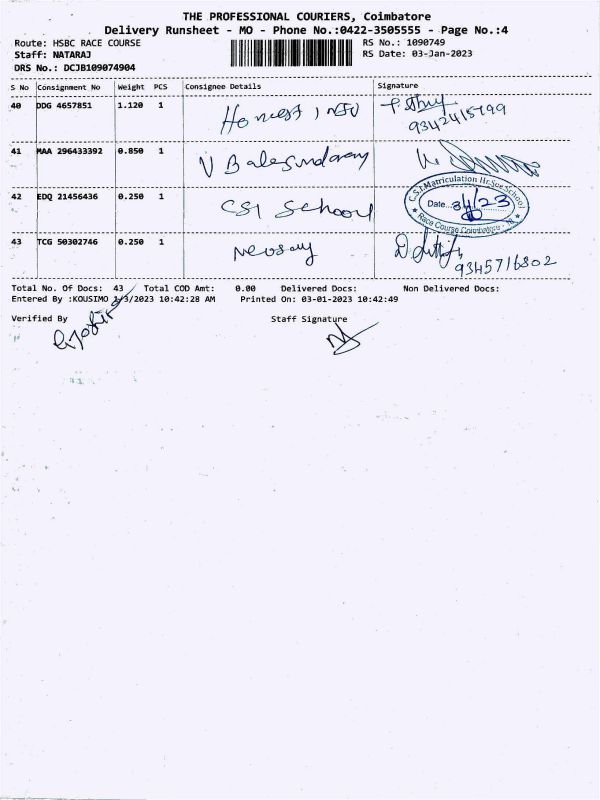 THE PROFESSIONAL COURIERS, Coimbatore
Delivery Runsheet - MO - Phone No.:0422-3505555 - Page No.:4
Route: HSBC RACE COURSE
Staff: NATARAJ
DRS No.: DCJB109074904
RS No.: 1090749
RS Date: 03-Jan-2023
S No Consignment No Weight PCS Consignee Details Signature
40 DDG 4657851 1.120 1 Honest
9342415799
41 MAA 296433392 0.850 1 V Balasundaram
42 EDQ 21456436 0.250 1 CSI School
C.S.I. Matriculation Hr.Sec.School
Date
Race Course, Coimbatore
43 TCG 50302746 0.250 1
9345716802
Total No. Of Docs: 43 Total COD Amt: 0.00 Delivered Docs: Non Delivered Docs:
Entered By :KOUSIMO 1/3/2023 10:42:28 AM Printed On: 03-01-2023 10:42:49
Verified By Staff Signature